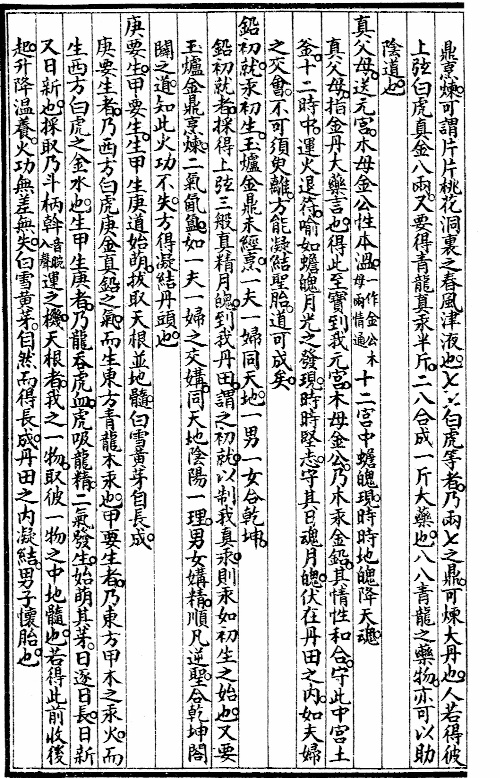 鼎烹煉可謂片片桃花洞裏之春風津液也七七白虎等者乃兩七之鼎可煉大丹也人若得彼
上弦白虎真金八兩又要得青龍真汞半斤二八合成一斤大藥也八八青龍之藥物亦可以助
陰道也
真父母送元宮木母金公性本溫一作金公木母兩情通十二宮中蟾魄現時時地魄降天魂
真父母指金丹大藥言也得此至寶到我元宮木母金公乃木汞金鉛其情性和合守此中宮土
釜十二時中運火退符喻如蟾魄月光之發現時時堅志守其日魂月魄伏在丹田之內如夫婦
之交會不可須臾離方能凝結聖胎道可成矣
鉛初就汞初生玉爐金鼎未經烹一夫一婦同天地一男一女合乾坤
鉛初就者採得上弦三般真精月魄到我丹田謂之初就以制我真汞則汞如初生之始也又要
玉爐金鼎烹煉二氣氤氳如一夫一婦之交媾同天地陰陽一理男女媾精順凡逆聖合乾坤闔
闢之道知此火功不失方得凝結丹頭也
庚要生甲要生生甲生庚道始萌拔取天根並地髓白雪黃芽自長成
庚要生者乃西方白虎庚金真鉛之氣而生東方青龍木汞也甲要生者乃東方甲木之汞火而
生西方白虎之金水也生甲生庚者乃龍吞虎血虎吸龍精二氣發生始萌其芽日逐日長日新
又日新也採取乃斗柄斡音脘入聲運之機天根者我之一物取彼一物之中地髓也若得此前收後
起升降溫養火功無差無失白雪黃芽自然而得長成丹田之內凝結男子懷胎也